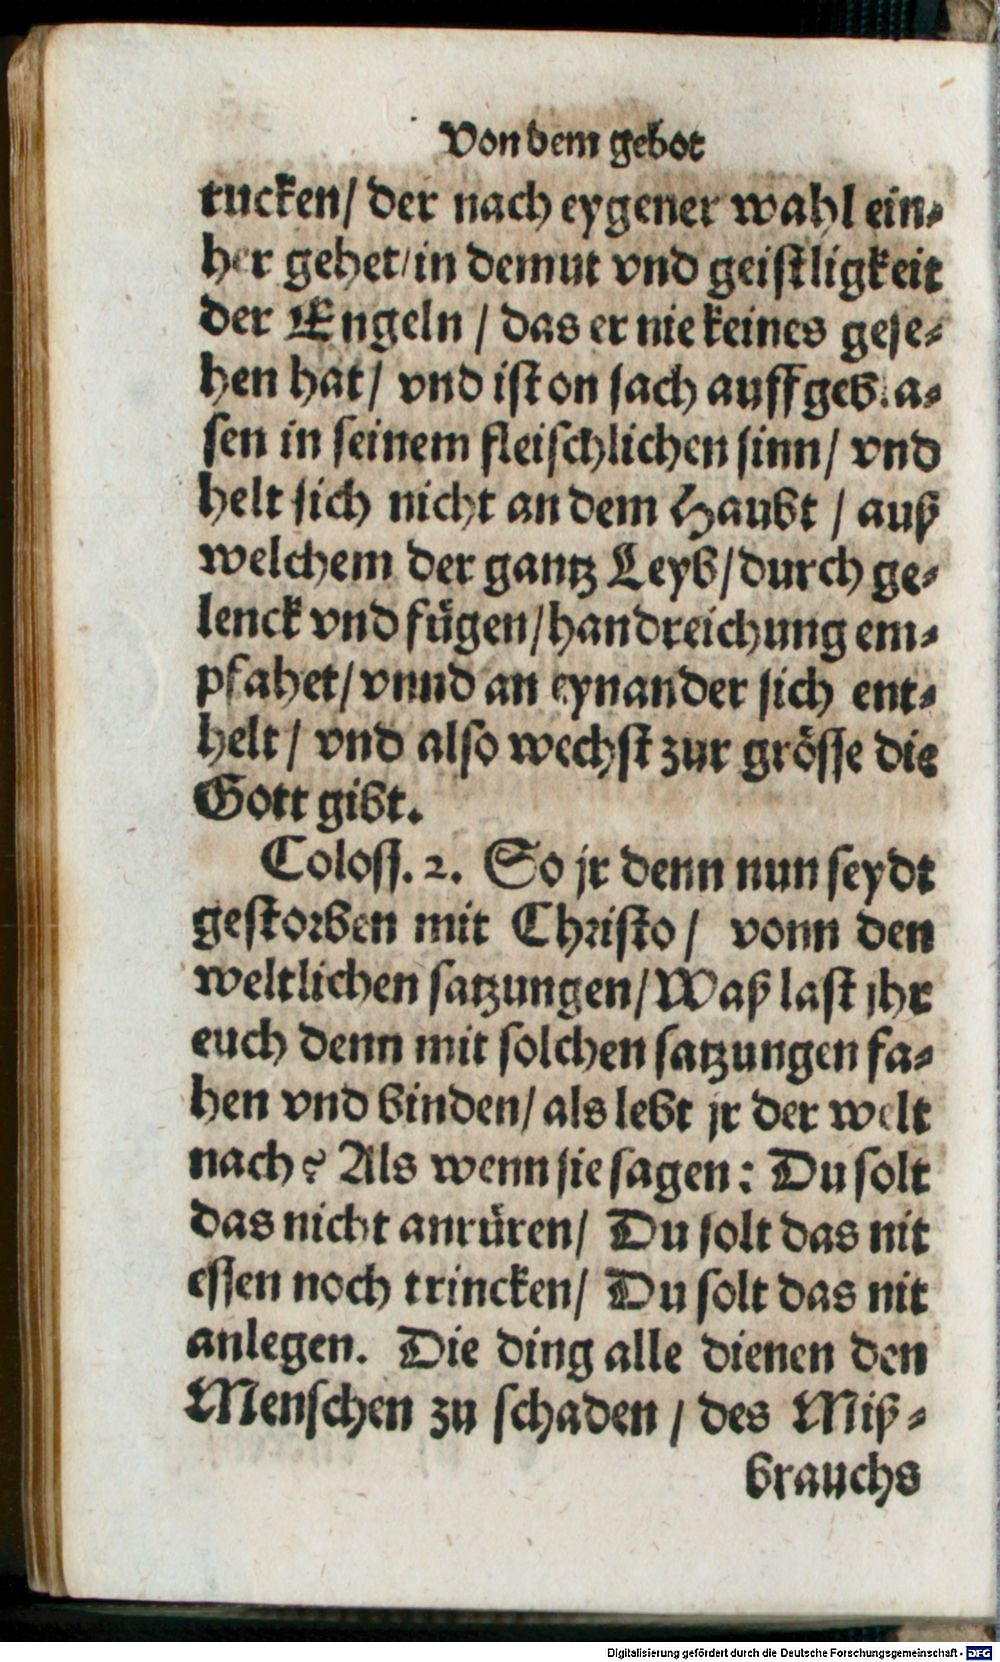 Von dem gebot
rucken/ der nach eygener wahl ein⸗
her gehet/in demut vnd geistligkeit
der Engeln / das er nie keines gese⸗
hen hat/ vnd ist on sach auffgeblа⸗
sen in seinem fleischlichen sinn/ vnd
helt sich nicht an dem Haubt / auß
welchem der gantz Leyb/durch ge⸗
lenck vnd fügen/handreichung em⸗
pfahet/vnnd an eynander sich ent⸗
helt / vnd also wechst zur grösse die
Gott gibt.
Coloss. 2. So jr denn nun seydt
gestorben mit Christo / vonn den
weltlichen satzungen/Waß last jhr
euch denn mit solchen satzungen fa⸗
hen vnd binden/ als lebt jr der welt
nach? Als wenn sie sagen: Du solt
das nicht anrüren/ Du solt das nit
essen noch trincken/ Du solt das nit
anlegen. Die ding alle dienen den
Menschen zu schaden / des Miß⸗
brauchs
Digitalisierung gefördert durch die Deutsche Forschungsgemeinschaft - DFG